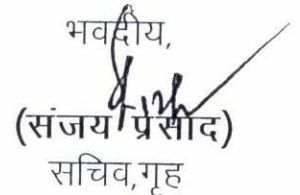 भवदीय,
(संजय प्रसाद)
सचिव,गृह